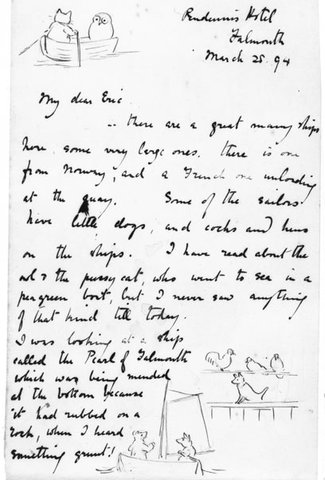 Pendennis Hotel
Falmouth
March 28. 94
My dear Eric
.. there are a great many ships
here, some very large ones. there is one
from Norway, and a French one unloading
at the quay. Some of the sailors
have little dogs, and cocks and hens
on the ships. I have read about the
owl & the pussy cat, who went to sea in a
pea green boat, but I never saw anything
of that kind till today.
I was looking at a ship
called the Pearl of Falmouth
which was being mended
at the bottom because
it had rubbed on a
rock, when I heard
something grunt!